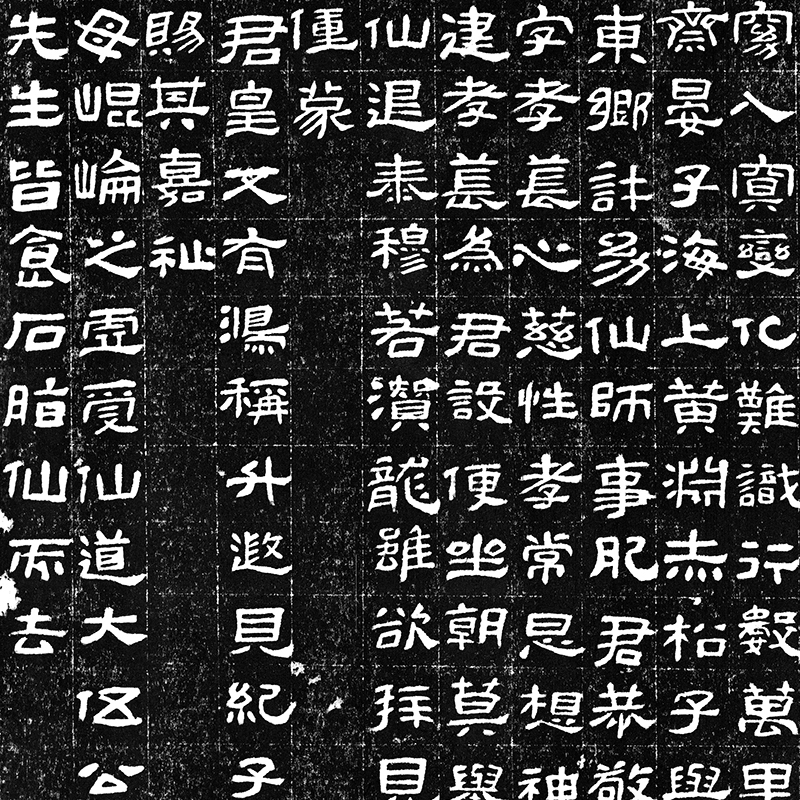 窈入冥變化難識行數萬里
齋晏子海上黃淵赤松子與
東鄉許幼仙師事肥君恭敬
字孝萇心慈性孝常思想神
建孝萇為君設便坐朝莫舉
仙退泰穆若潛龍雖欲拜見
僮蒙
君皇又有鴻稱升遐見紀子
賜其嘉祉
母崐崘之虛受仙道大伍公
先生皆食石脂仙而去